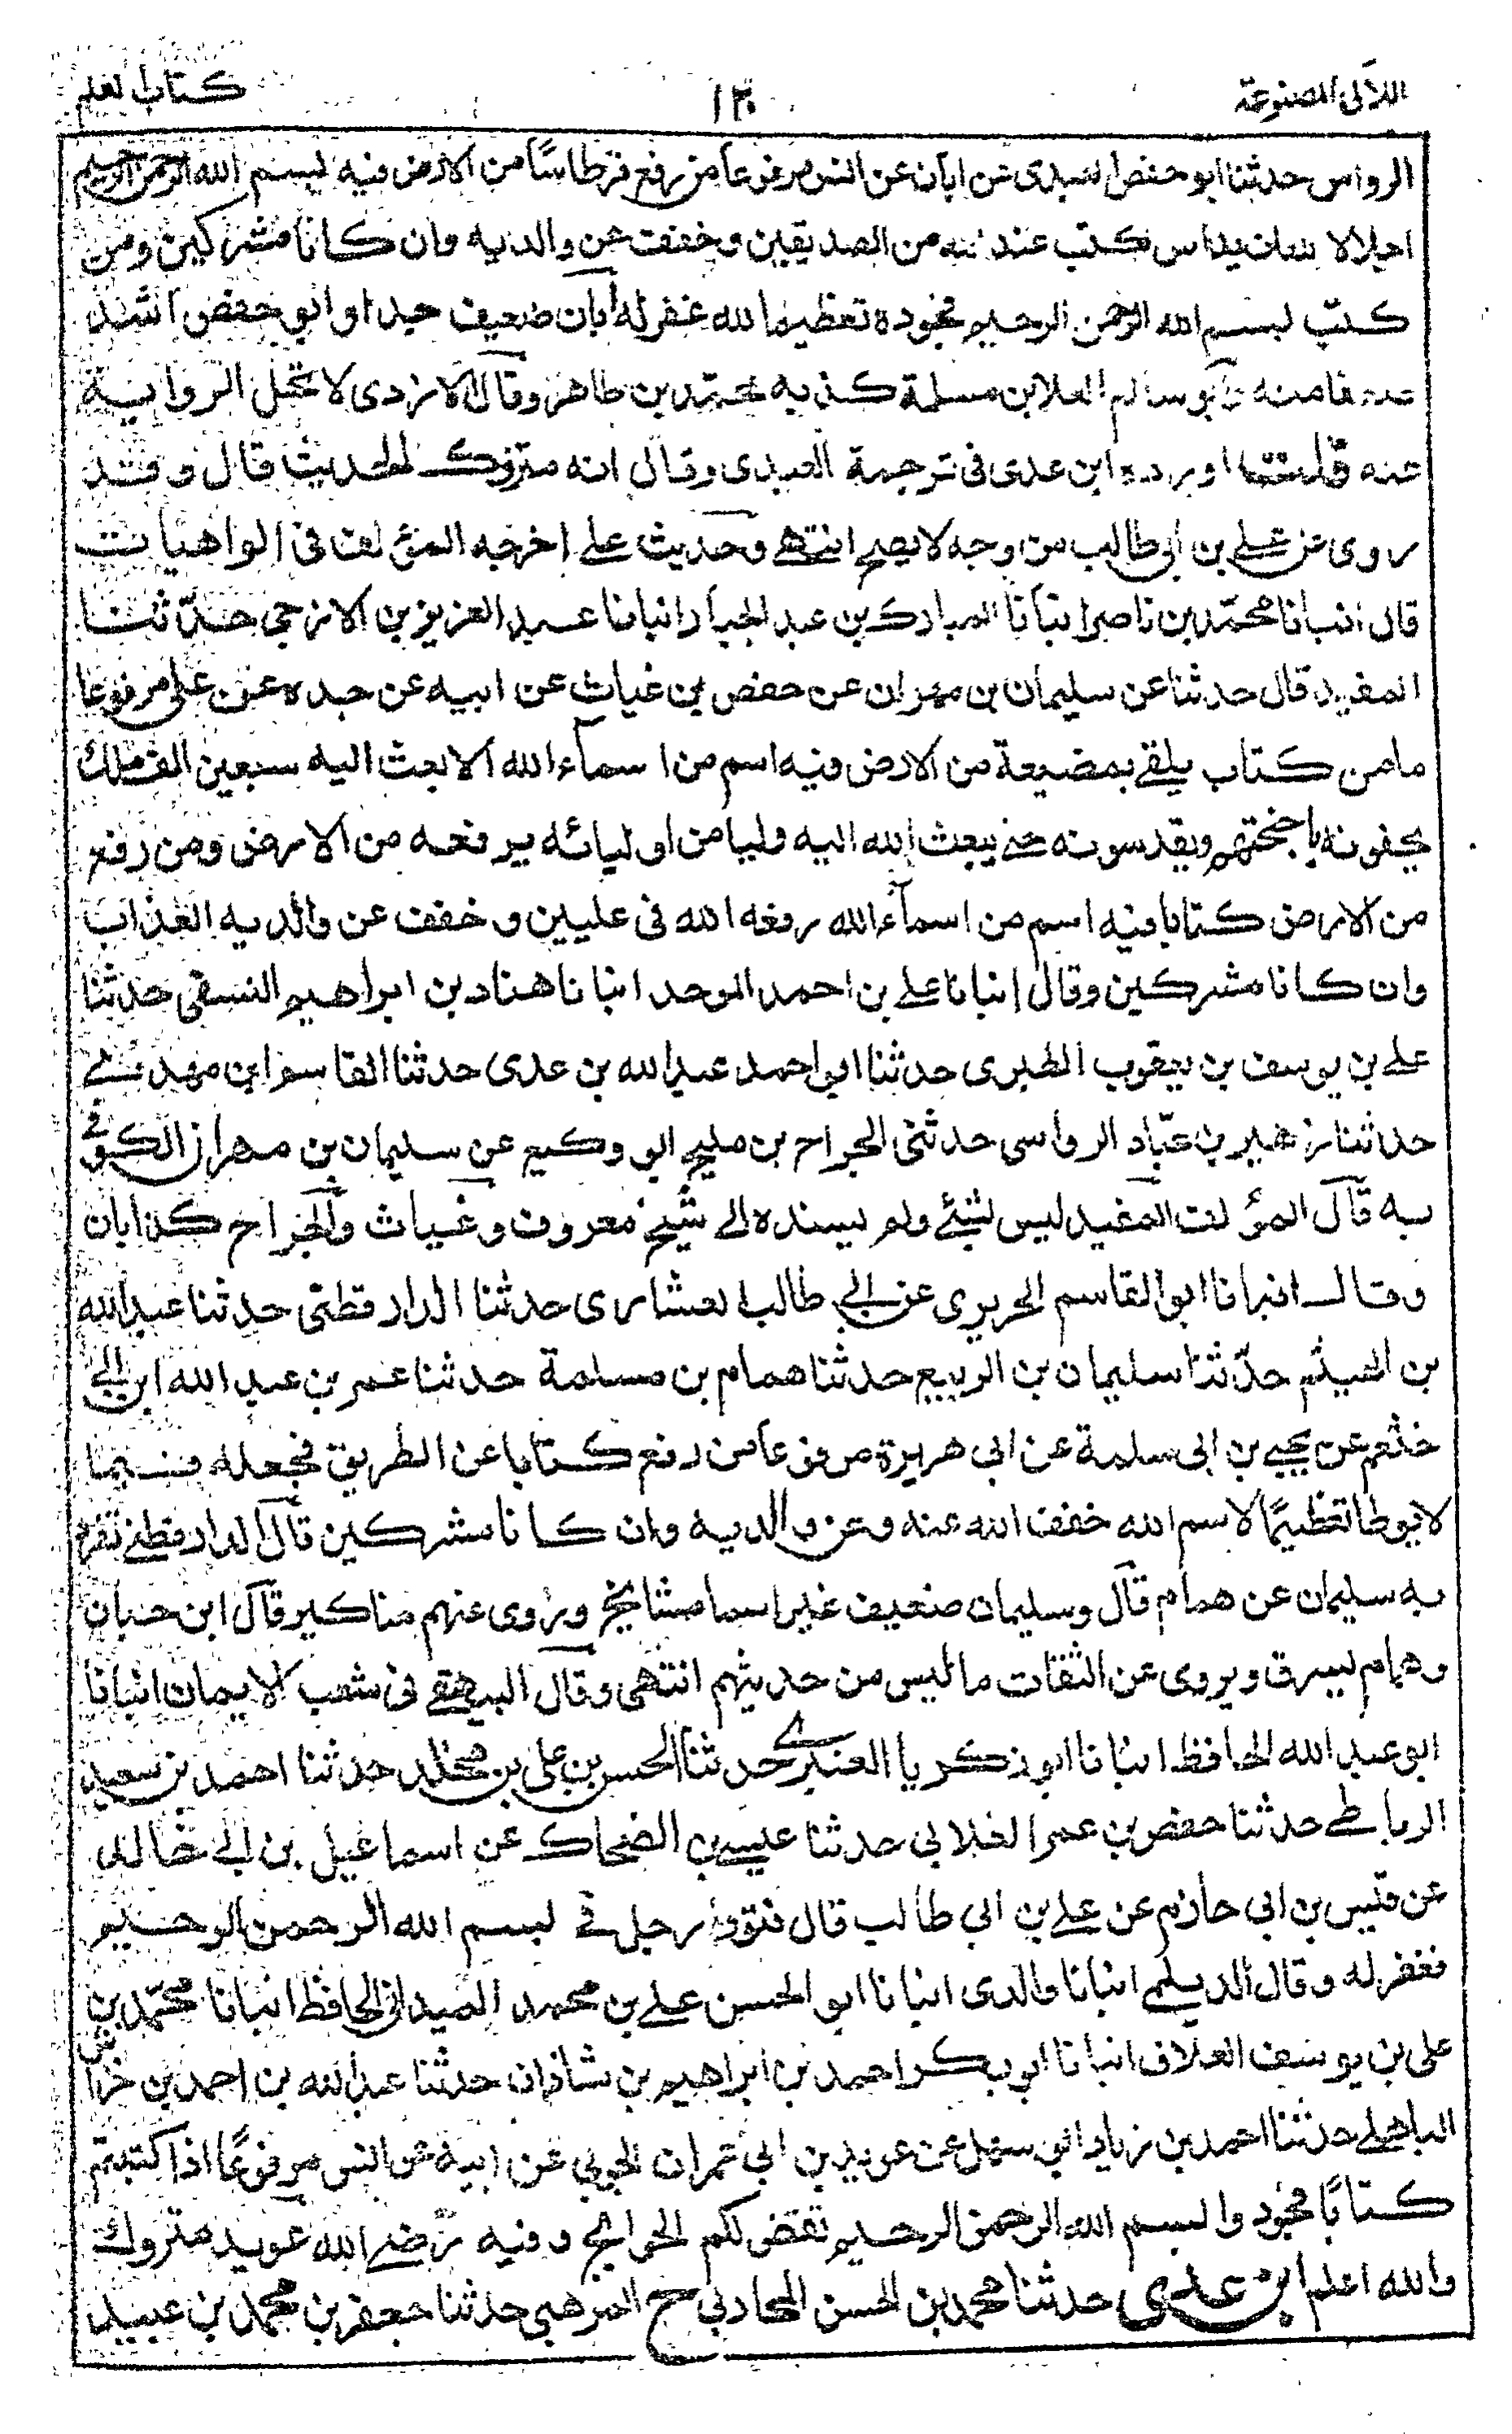 اللآلى المصنوعة
١٣٠
كتاب العلم
الرواس حدثنا ابو حفص العبدى عن ابان عن انس مرفوعا من رفع قرطاسًا من الارض فيه بسم الله الرحمن الرحيم
اجلالا لله ان يداس كتب عند الله من الصديقين وخفف عن والديه وان كانا مشركين ومن
كتب بسم الله الرحمن الرحيم بجوده تعظيما لله غفر له ابان ضعيف جدا وابو حفص اشد
ضعفا منه وابو سالم العلا بن مسلمة كذبه محمّد بن طاهر وقال الازدى لا تحل الرواية
عنه قلت اورده ابن عدى فى ترجمة العبدى وقال انه متروك الحديث قال وقد
روى عن على بن ابى طالب من وجه لا يصح انتهى وحديث على اخرجه المؤلف فى الواهيات
قال انبانا محمّد بن ناصر انبانا المبارك بن عبد الجبار انبانا عبد العزيز بن الازجى حدّثنا
المفيد قال حدثنا عن سليمان بن مهران عن حفص بن غياث عن ابيه عن جده عن على مرفوعا
ما من كتاب يلقى بمضيعة من الارض فيه اسم من اسمآء الله الا بعث اليه سبعين الف ملك
يحفونه باجنحتهم ويقدسونه حتى يبعث الله اليه وليا من اوليائه يرفعه من الارض ومن رفع
من الارض كتابا فيه اسم من اسمآء الله رفعه الله فى عليين وخفف عن والديه العذاب
وان كانا مشركين وقال انبانا على بن احمد الموحد انبانا هناد بن ابراهيم النسفى حدثنا
على بن يوسف بن يعقوب الطبرى حدثنا ابو احمد عبد الله بن عدى حدثنا القاسم ابن مهدى
حدثنا زهير بن عبّاد الرواسى حدثنى الجراح بن مليح ابو وكيع عن سليمان بن مهران الكوفى
به قال المؤلف المفيد ليس بشئ ولم يسنده الى شيخ معروف وغياث والجراح كذابان
وقال انبانا ابو القاسم الحريرى عن ابى طالب العشارى حدثنا الدارقطنى حدثنا عبد الله
بن الهيثم حدّثنا سليمان بن الربيع حدثنا همام بن مسلمة حدثنا عمر بن عبد الله ابن ابى
خثعم عن يحيى بن ابى سلمة عن ابى هريرة مرفوعا من رفع كتابا عن الطريق فجعله فيما
لا يوطا تعظيمًا لاسم الله خفف الله عنه وعن والديه وان كانا مشركين قال الدارقطنى تفرد
به سليمان عن همام قال وسليمان ضعيف غير اسما مشايخ وروى عنهم مناكير قال ابن حبان
وهمام يسرق ويروى عن الثقات ما ليس من حديثهم انتهى وقال البيهقى فى شعب الايمان انبانا
ابو عبد الله الحافظ انبانا ابو ذكريا العنبرى حدثنا الحسن بن على بن مخلد حدثنا احمد بن سعيد
الرباطى حدثنا حفص بن عمر الغلابى حدثنا عيسى بن الضحاك عن اسماعيل بن ابى خالد
عن قيس بن ابى حازم عن على بن ابى طالب قال فتوق رجل فى بسم الله الرحمن الرحيم
فغفر له وقال الديلمى انبانا والدى انبانا ابو الحسن على بن محمد الميدانى الحافظ انبانا محمّد بن
على بن يوسف العلاف انبانا ابو بكر احمد بن ابراهيم بن شاذان حدثنا عبد الله بن احمد بن خراش
الباهلى حدثنا احمد بن زياد ابو سهل عن عويد بن ابى عمران الجونى عن ابيه عن انس مرفوعًا اذا كتبتم
كتابًا فجودوا بسم الله الرحمن الرحيم تقض لكم الحوائج وفيه رضى الله عويد متروك
والله اعلم ابن عدى حدثنا محمد بن الحسن المحاربى ح المرهبى حدثنا جعفر بن محمد بن عبيد